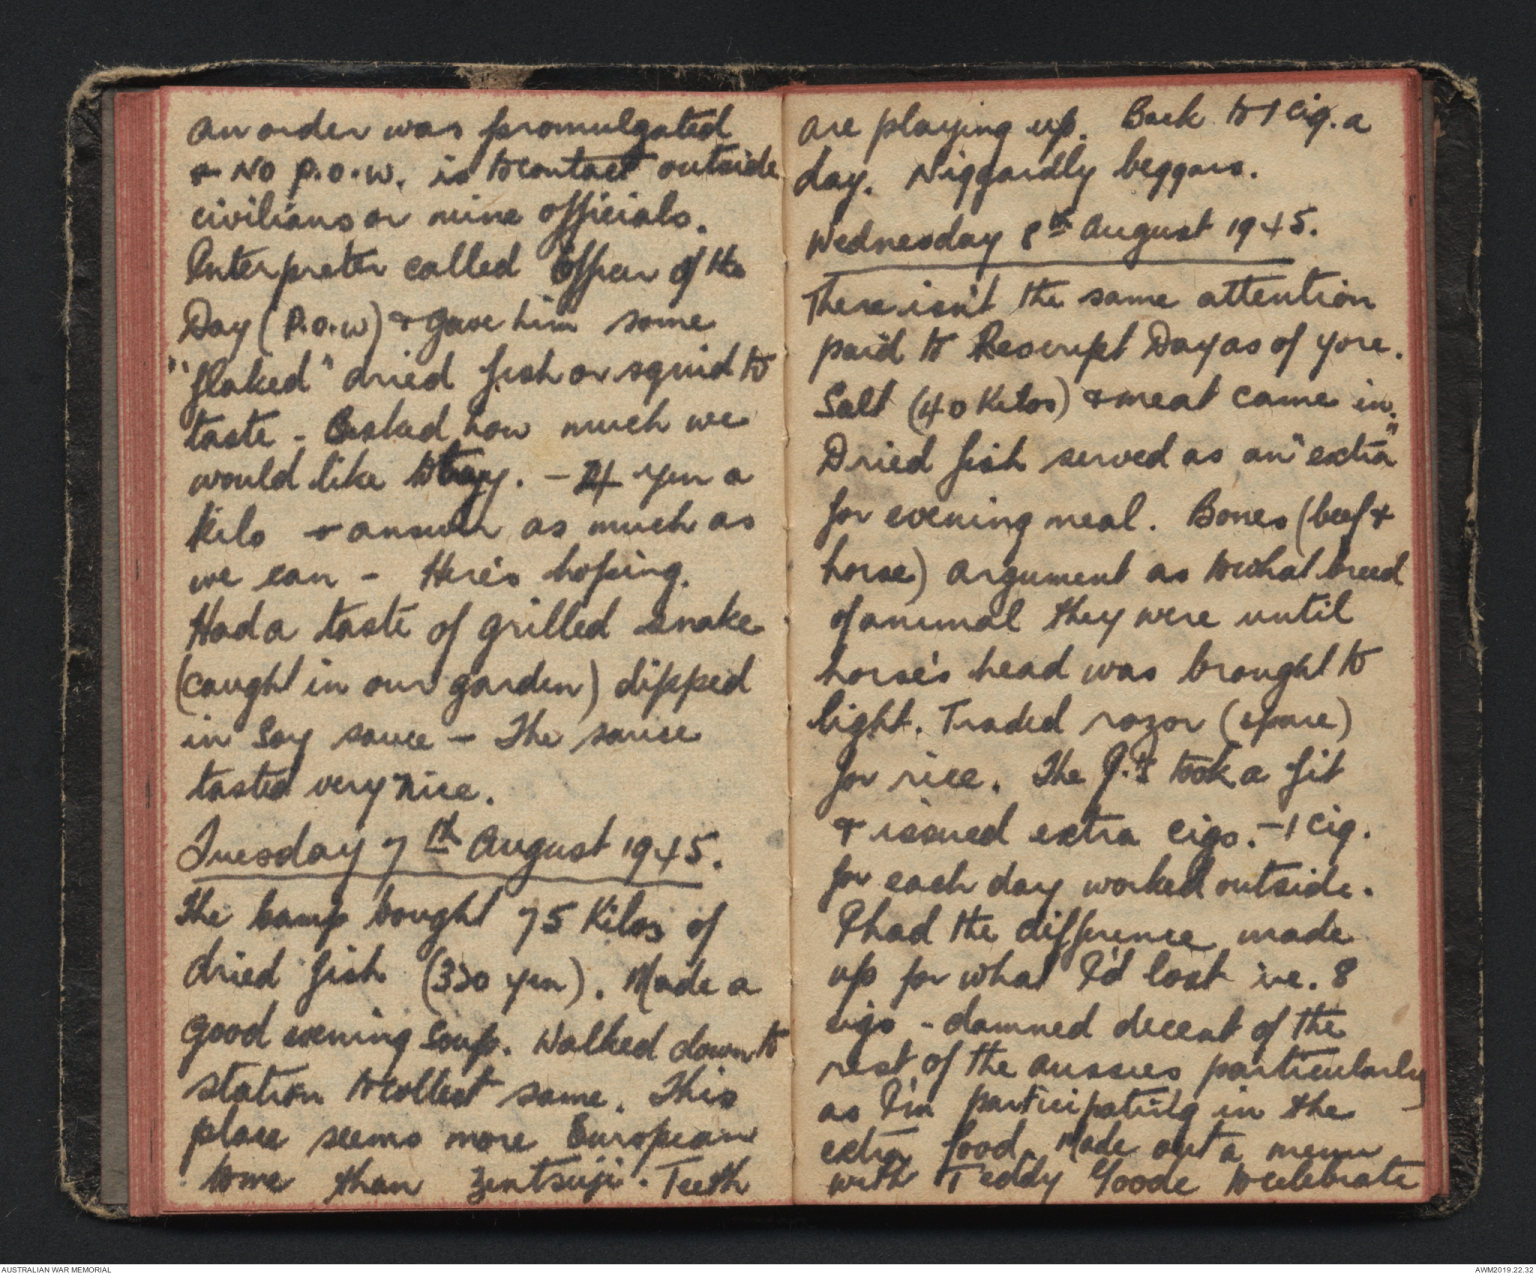 an order was promulgated
& No P.O.W. is to contact outside
civilians or mine officials.
Interpreter called Officer of the
Day (P.O.W) & gave him some
"flaked" dried fish or squid to
taste - Asked how much we
would like to buy. - 24 yen a
kilo & answer as much as
we can - Here's hoping.
Had a taste of grilled snake
(caught in our garden) dipped
in Soy sauce - The sauce
tasted very nice.
Tuesday 7th August 1945.
The camp bought 75 Kilos of
dried fish (330 yen). Made a
good evening Soup. Walked down to
station to collect same. This
place seems more European
to me than Zentsuji. Teeth
are playing up. Back to 1 cig. a
day. Niggardly beggars.
Wednesday 8th August 1945.
There isn't the same attention
paid to Rescript Day as of yore.
Salt (40 Kilos) & meat came in.
Dried fish served as an "extra"
for evening meal. Bones (beef &
horse) argument as to what breed
of animal they were until
horse's head was brought to
light. Traded razor (spare)
for rice. The J.'s took a fit
& issued extra cigs. - 1 cig.
for each day worked outside.
I had the difference made
up for what I'd lost ie. 8
cigs - damned decent of the
rest of the aussies particularly
as I'm participating in the
extra food. Made out a menu
with Teddy Goode to celebrate
AUSTRALIAN WAR MEMORIAL
AWM2019.22.32